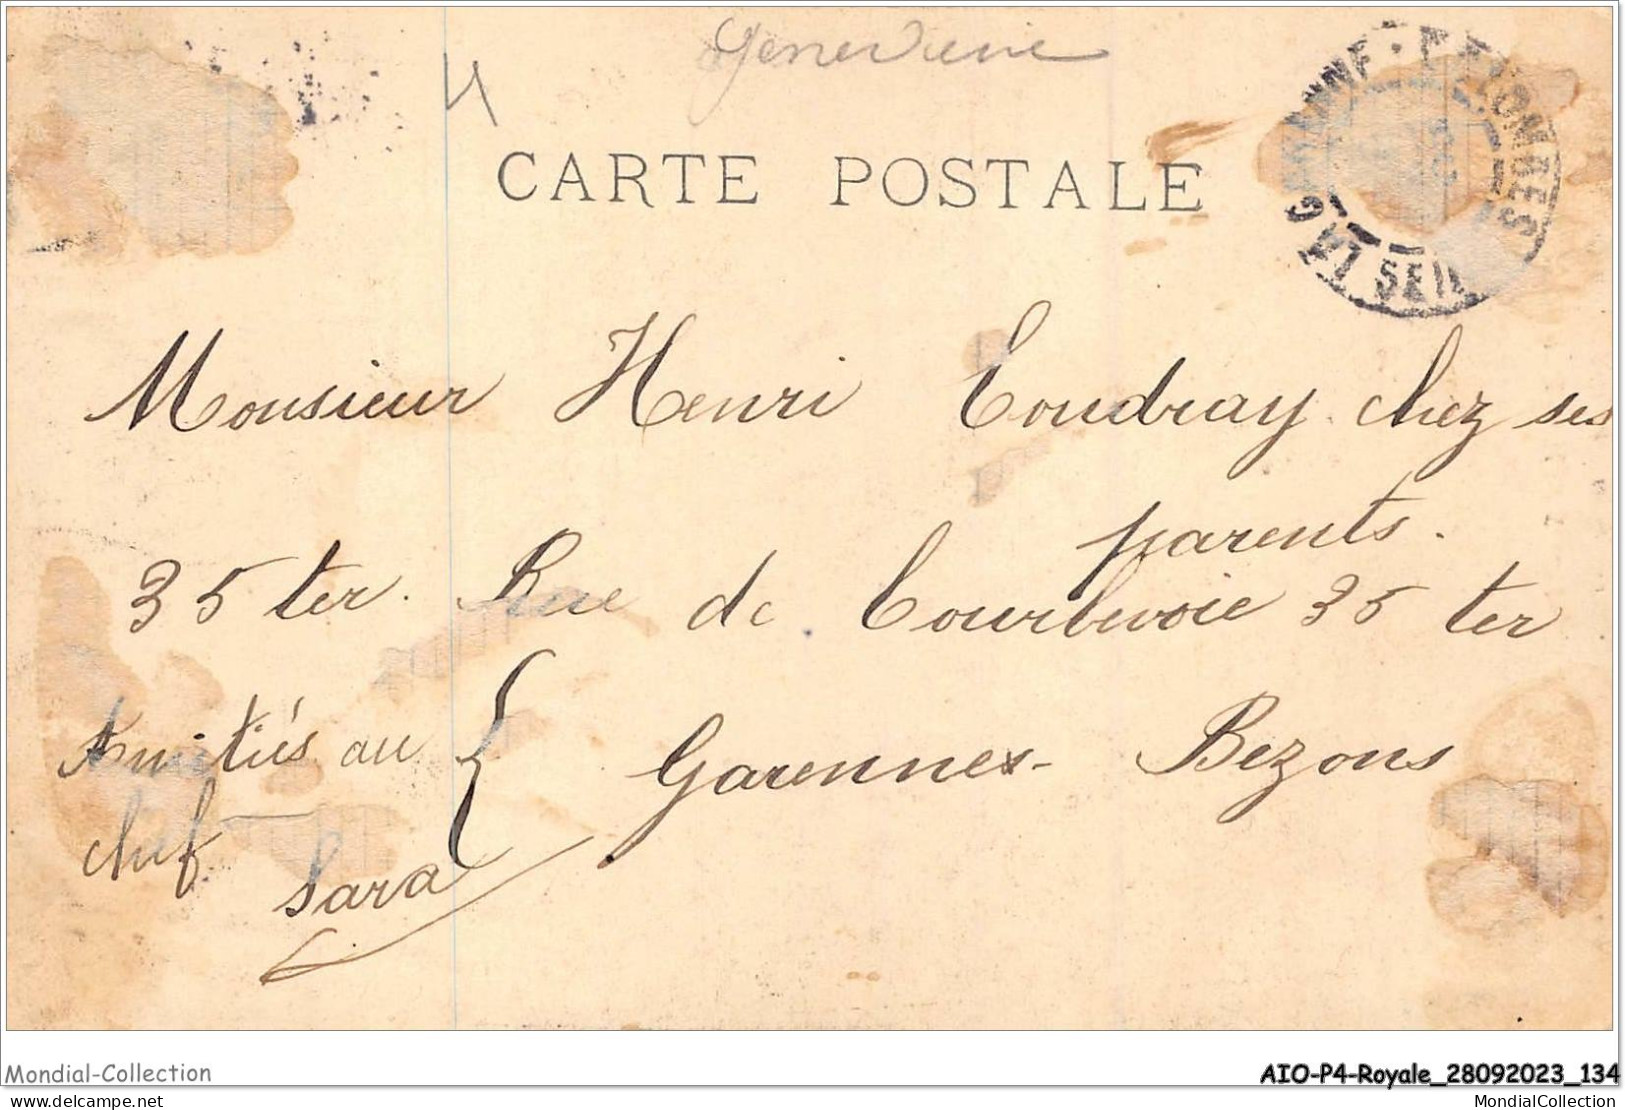 Genevieve
CARTE POSTALE
LA GARENNE · COLOMBES
SEINE
Monsieur Henri Coudray chez ses
parents.
35 ter. Rue de Courbevoie 35 ter
Amitiés au
chef
Sara
Garennes - Bezons
Mondial-Collection
AIO-P4-Royale_28092023_134
delcampe.net
MondialCollection